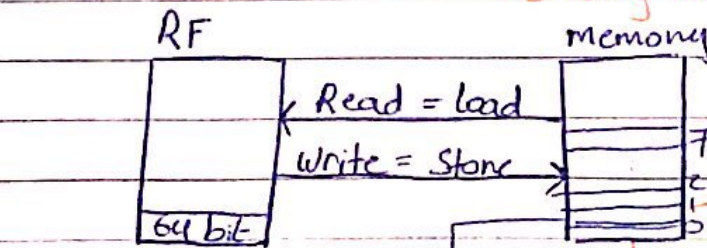 RF
memory
Read = load
7
write = Store
2
1
64 bit
0